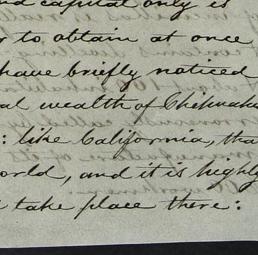 nd capital only is
r to obtain at once
have briefly noticed
al wealth of Chihuahu
: like California, tha
orld, and it is highly
take place there: